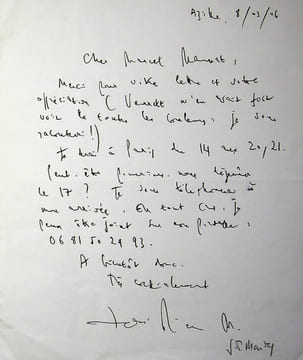 8/03/06
Cher Marcel
Merci pour votre lettre et votre
m'en fait
voir de toutes les couleurs : je vous
raconterai !)
Je serai à Paris du 14 au 20/21.
Peut-être pourrions-nous
le 17 ? Je vous téléphonerai à
mon arrivée. En tout cas, je
peux être joint sur mon portable :
06 81 50 29 93.
A bientôt donc.
Très cordialement